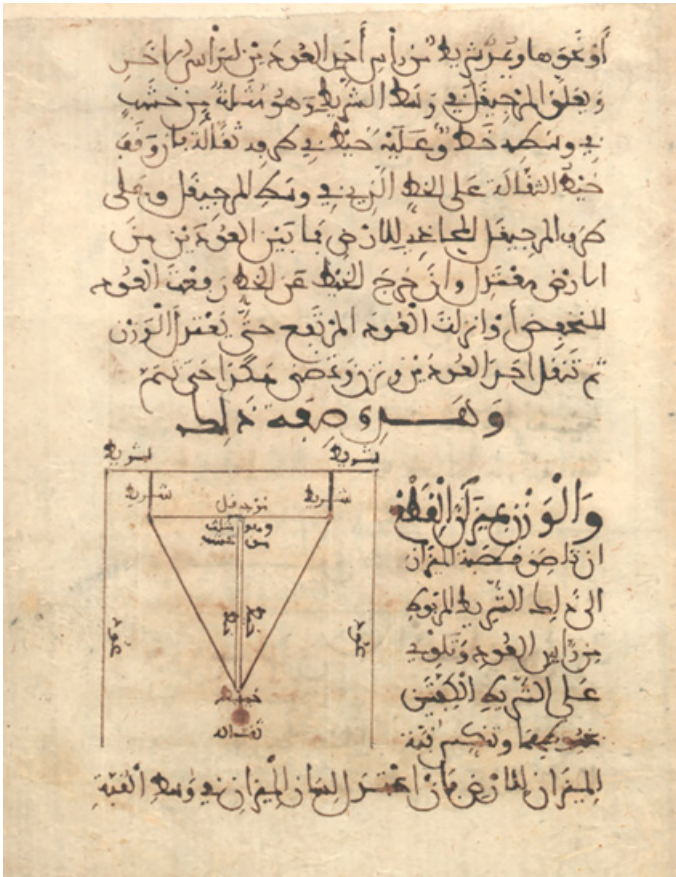 أو نحوها ويمر شريط من رأس أحد العودين لرأس الاخر
ويعلق المرجيقل في وسط الشريط وهو مثلث من خشب
في وسطه خط وعليه خيط في طرفه ثقالة فان وقف
خيط الثقالة على الخط الذي في وسط المرجيقل وعلى
طرف المرجيقل للارض فما بين العودين من
الارض معتدل وان خرج الخيط عن الخط رفعت العود
المنخفض أو انزلت العود المرتفع حتى يعتدل الوزن
ثم تنقل احد العودين وتزن وتمضي هكذا حتى يتم
وهذه صفة ذلك
شريط شريط
شريط مرجيقل شريط
وهو مثلث
من خشب
خيط خط
عود عود
خيط
ثقالة
والوزن بميزان
ان تلصق قصبة الميزان
الى ذلك الشريط المربوط
من رأس العود وتلوي
على الشريط الكفتين
وتنكس قبة
الميزان للارض فان اعتدل لسان الميزان في وسط القبة